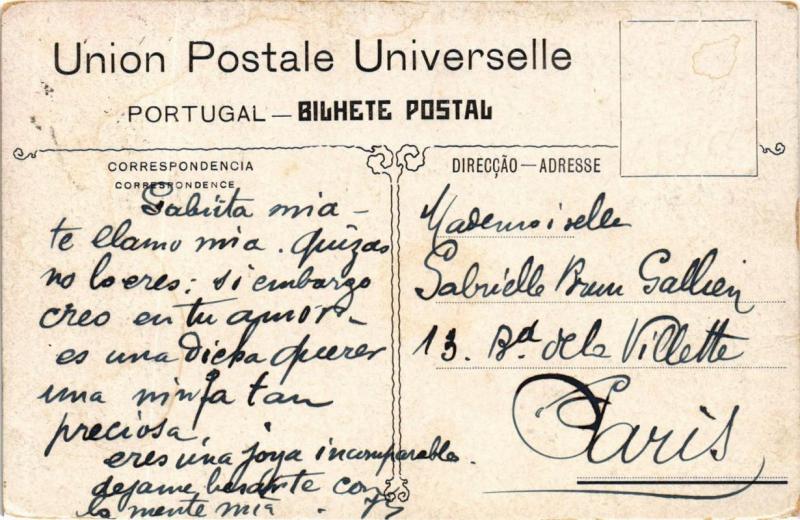 Union Postale Universelle
PORTUGAL — BILHETE POSTAL
CORRESPONDENCIA
CORRESPONDENCE
DIRECÇÃO — ADRESSE
Gabiita mia -
te llamo mia. quizas
no lo eres; si embargo
creo en tu amor.
es una dicha querer
una ninfa tan
preciosa,
eres una joya incomparable.
dejame besarte con
la mente mia.
Mademoiselle
Gabrielle Brun Gallien
13. Bd de la Villette
Paris